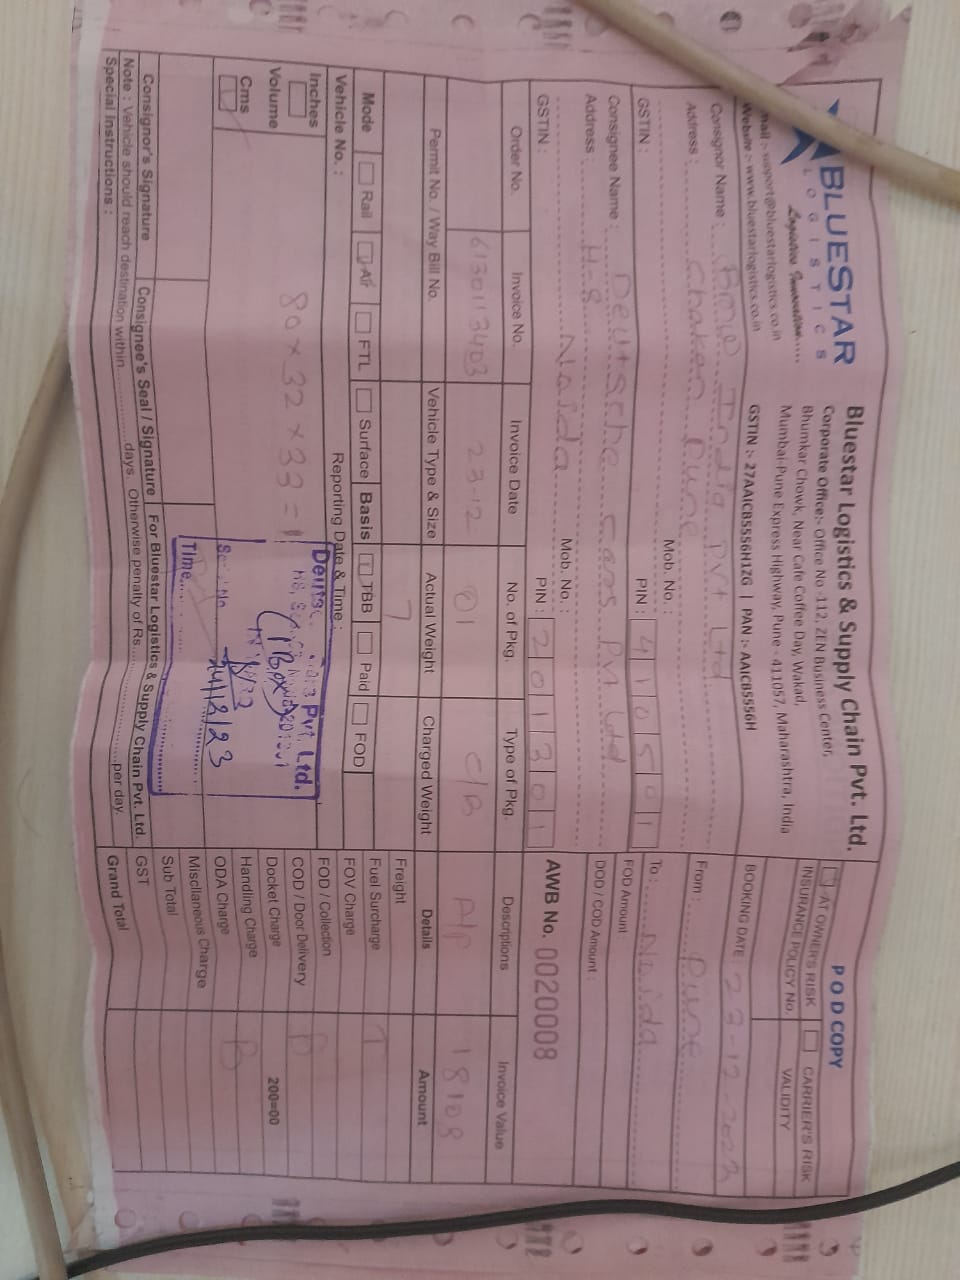 BLUESTAR
LOGISTICS
Logistics Innovation.....
mail :- support@bluestarlogistics.co.in
Website :- www.bluestarlogistics.co.in
Bluestar Logistics & Supply Chain Pvt. Ltd.
Corporate Office:- Office No -112, ZEN Business Center,
Bhumkar Chowk, Near Cafe Coffee Day, Wakad,
Mumbai-Pune Express Highway, Pune - 411057, Maharashtra, India
GSTIN :- 27AAICB5556H1ZG | PAN :- AAICB5556H
POD COPY
AT OWNER'S RISK CARRIER'S RISK
INSURANCE POLICY No. VALIDITY
BOOKING DATE : 23-12-2023
Consignor Name : BMW India Pvt Ltd
Address : Chaken Pune
Mob. No. :
GSTIN : PIN : 410501
From : Pune
To : Noida
FOD Amount :
DOD / COD Amount :
Consignee Name : Deutsche Cars Pvt Ltd
Address : H-8
Noida Mob. No. :
GSTIN : PIN : 201301
AWB No. 0020008
Order No. Invoice No. Invoice Date No. of Pkg. Type of Pkg. Descriptions Invoice Value
6130113403 23-12 01 C/B A/P 18108
Permit No. / Way Bill No. Vehicle Type & Size Actual Weight Charged Weight Details Amount
7
Mode Rail Air FTL Surface Basis TBB Paid FOD
Vehicle No. : Reporting Date & Time :
Inches
Volume
Cms
80 × 32 × 33 =
Freight
Fuel Surcharge T
FOV Charge
FOD / Collection
COD / Door Delivery B
Docket Charge 200=00
Handling Charge B
ODA Charge
Miscllaneous Charge
Sub Total
GST
Grand Total
Pvt. Ltd.
(1 Box)
24/12/23
Time
Consignor's Signature Consignee's Seal / Signature For Bluestar Logistics & Supply Chain Pvt. Ltd.
Note : Vehicle should reach destination within..............days. Otherwise penalty of Rs......................per day.
Special Instructions :